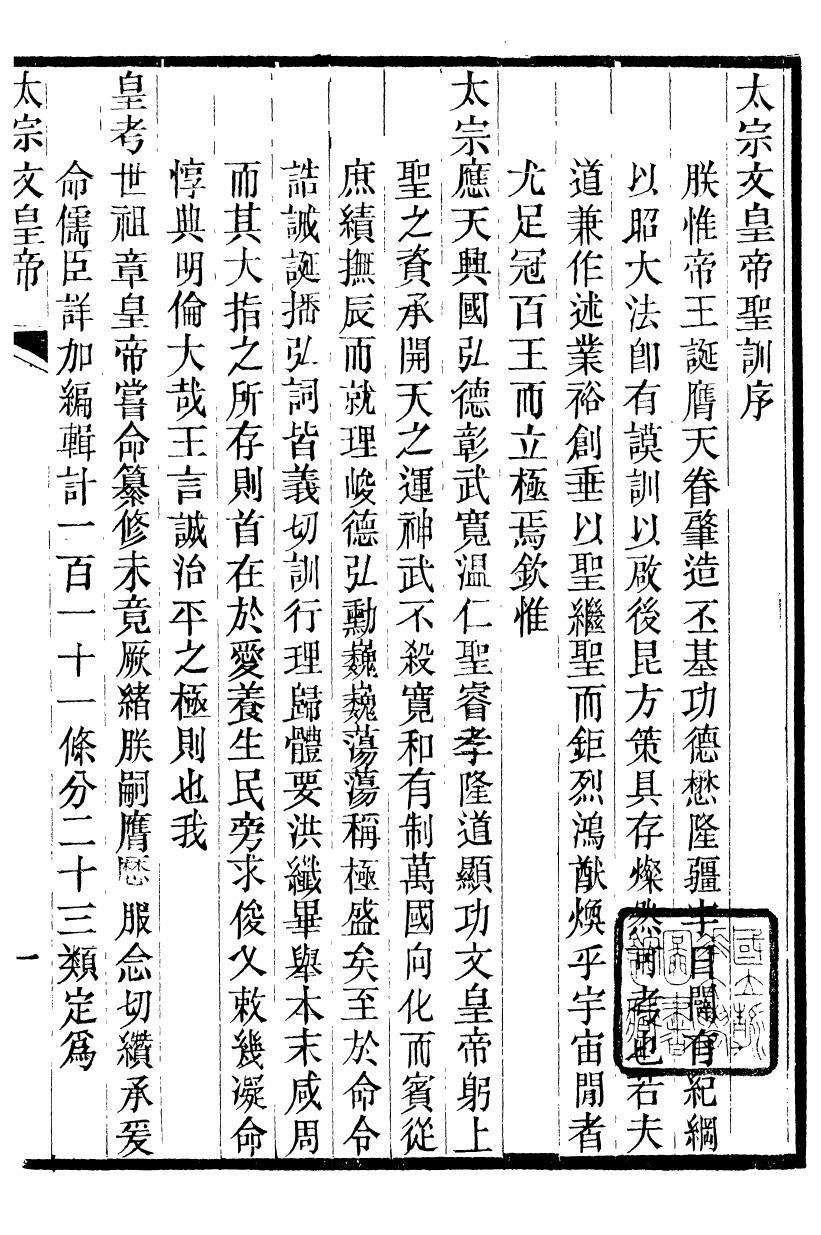 太宗文皇帝聖訓序
朕惟帝王誕膺天眷肇造丕基功德懋隆疆宇日闢有紀綱
以昭大法卽有謨訓以啟後昆方策具存燦然可考也若夫
道兼作述業裕創垂以聖繼聖而鉅烈鴻猷煥乎宇宙閒者
尤足冠百王而立極焉欽惟
太宗應天興國弘德彰武寬温仁聖睿孝隆道顯功文皇帝躬上
聖之資承開天之運神武不殺寬和有制萬國向化而賓從
庶績撫辰而就理峻德弘勳巍巍蕩蕩稱極盛矣至於命令
誥誡誕播弘詞皆義切訓行理歸體要洪纖畢舉本末咸周
而其大指之所存則首在於愛養生民旁求俊乂敕幾凝命
惇典明倫大哉王言誠治平之極則也我
皇考世祖章皇帝嘗命纂修未竟厥緒朕嗣膺厯服念切纘承爰
命儒臣詳加編輯計一百一十一條分二十三類定爲
太宗文皇帝
一